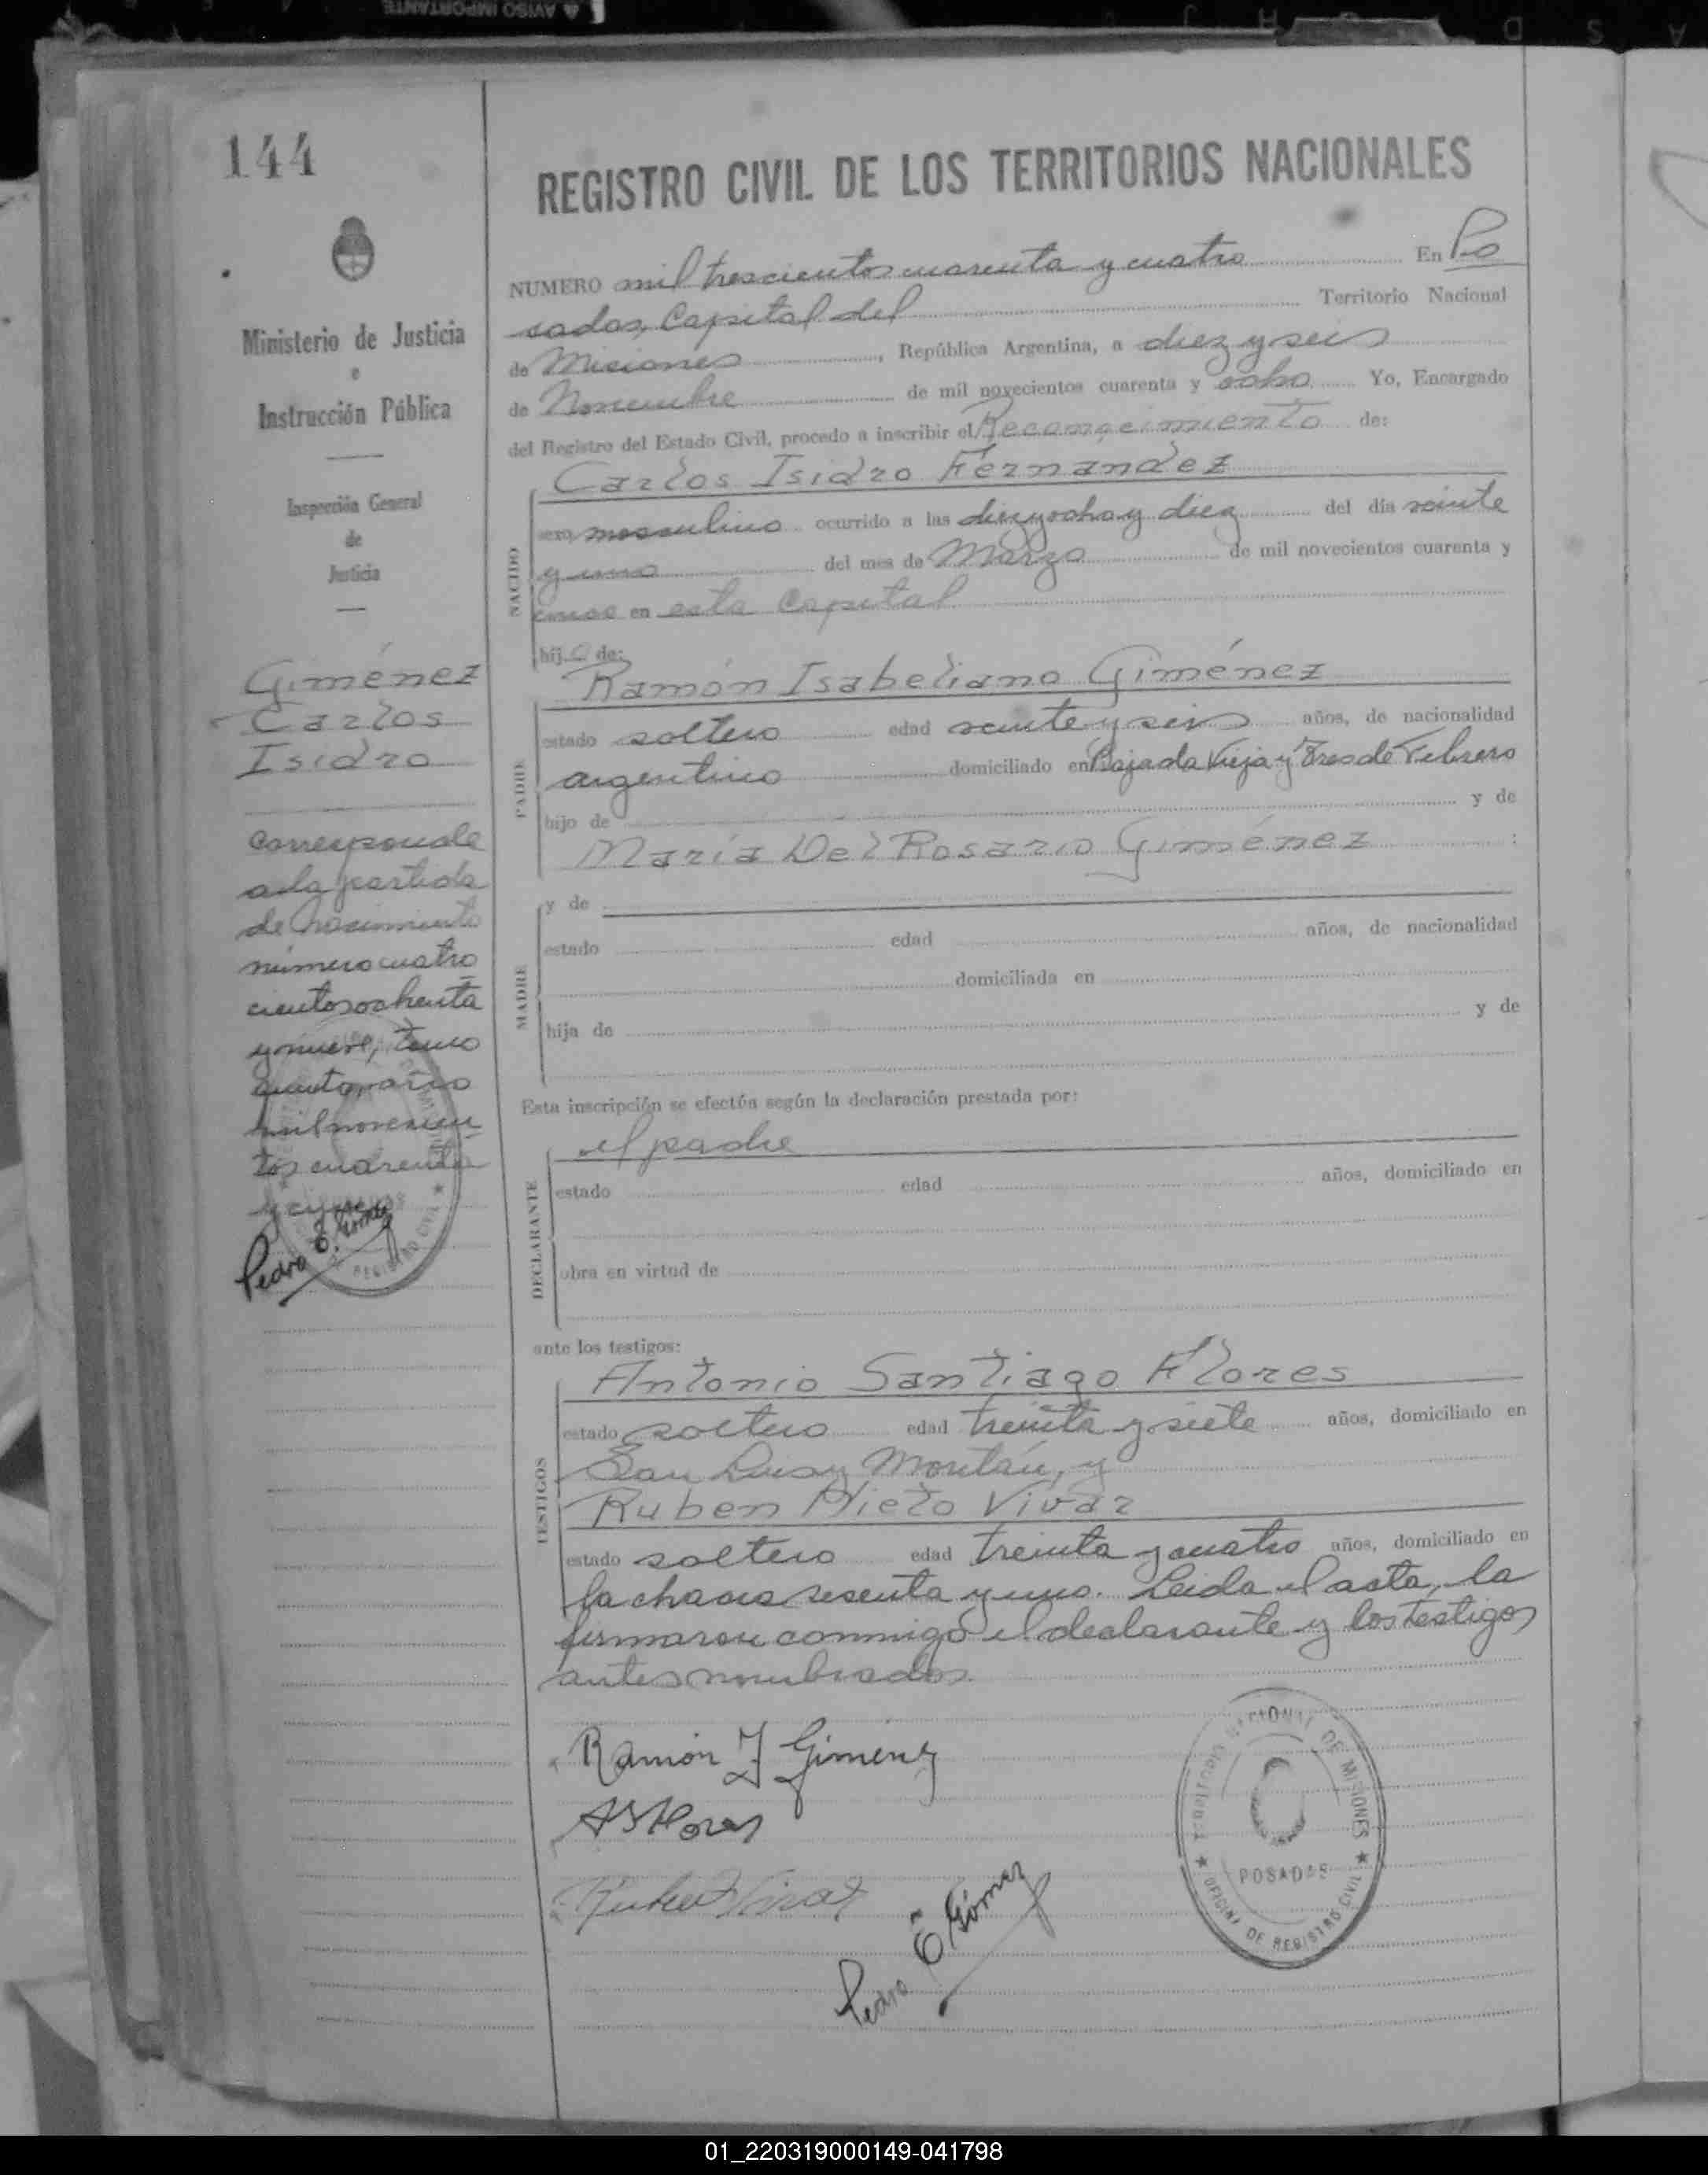 AVISO IMPORTANTE
144
REGISTRO CIVIL DE LOS TERRITORIOS NACIONALES
Ministerio de Justicia
e
Instrucción Pública
Inspección General
de
Justicia
Giménez
Carlos
Isidro
Corresponde
a la partida
de Nacimiento
número cuatro
cientos ochenta
y nueve, tomo
año
mil novecien
tos cuarenta
Pedro E. Gómez
NUMERO mil trescientos cuarenta y cuatro En Po
sadas, Capital del Territorio Nacional
de Misiones, República Argentina, a diez y seis
de Noviembre de mil novecientos cuarenta y ocho Yo, Encargado
del Registro del Estado Civil, procedo a inscribir el Reconocimiento de:
Carlos Isidro Fernandez
NACIDO
sexo masculino ocurrido a las diez y ocho y diez del día veinte
y uno del mes de Marzo de mil novecientos cuarenta y
en esta Capital
hijo de:
Ramón Isabeliano Giménez
PADRE
estado soltero edad veinte y seis años, de nacionalidad
argentino domiciliado en Bajada Vieja y Tres de Febrero
hijo de y de
María Del Rosario Giménez :
MADRE
y de
estado edad años, de nacionalidad
domiciliada en
hija de y de
Esta inscripción se efectúa según la declaración prestada por:
DECLARANTE
el padre
estado edad años, domiciliado en
obra en virtud de
ante los testigos:
TESTIGOS
Antonio Santiago Flores
estado soltero edad treinta y siete años, domiciliado en
San Luis y
Ruben Nieto Vivar
estado soltero edad treinta y cuatro años, domiciliado en
la chacra sesenta y uno. Leida el acta, la
firmaron conmigo el declarante y los testigos
antes nombrados.
Ramón I Giménez
A S Flores
Ruben Vivar
Pedro E. Gómez
TERRITORIO NACIONAL DE MISIONES
POSADAS
OFICINA DE REGISTRO CIVIL
01_220319000149-041798